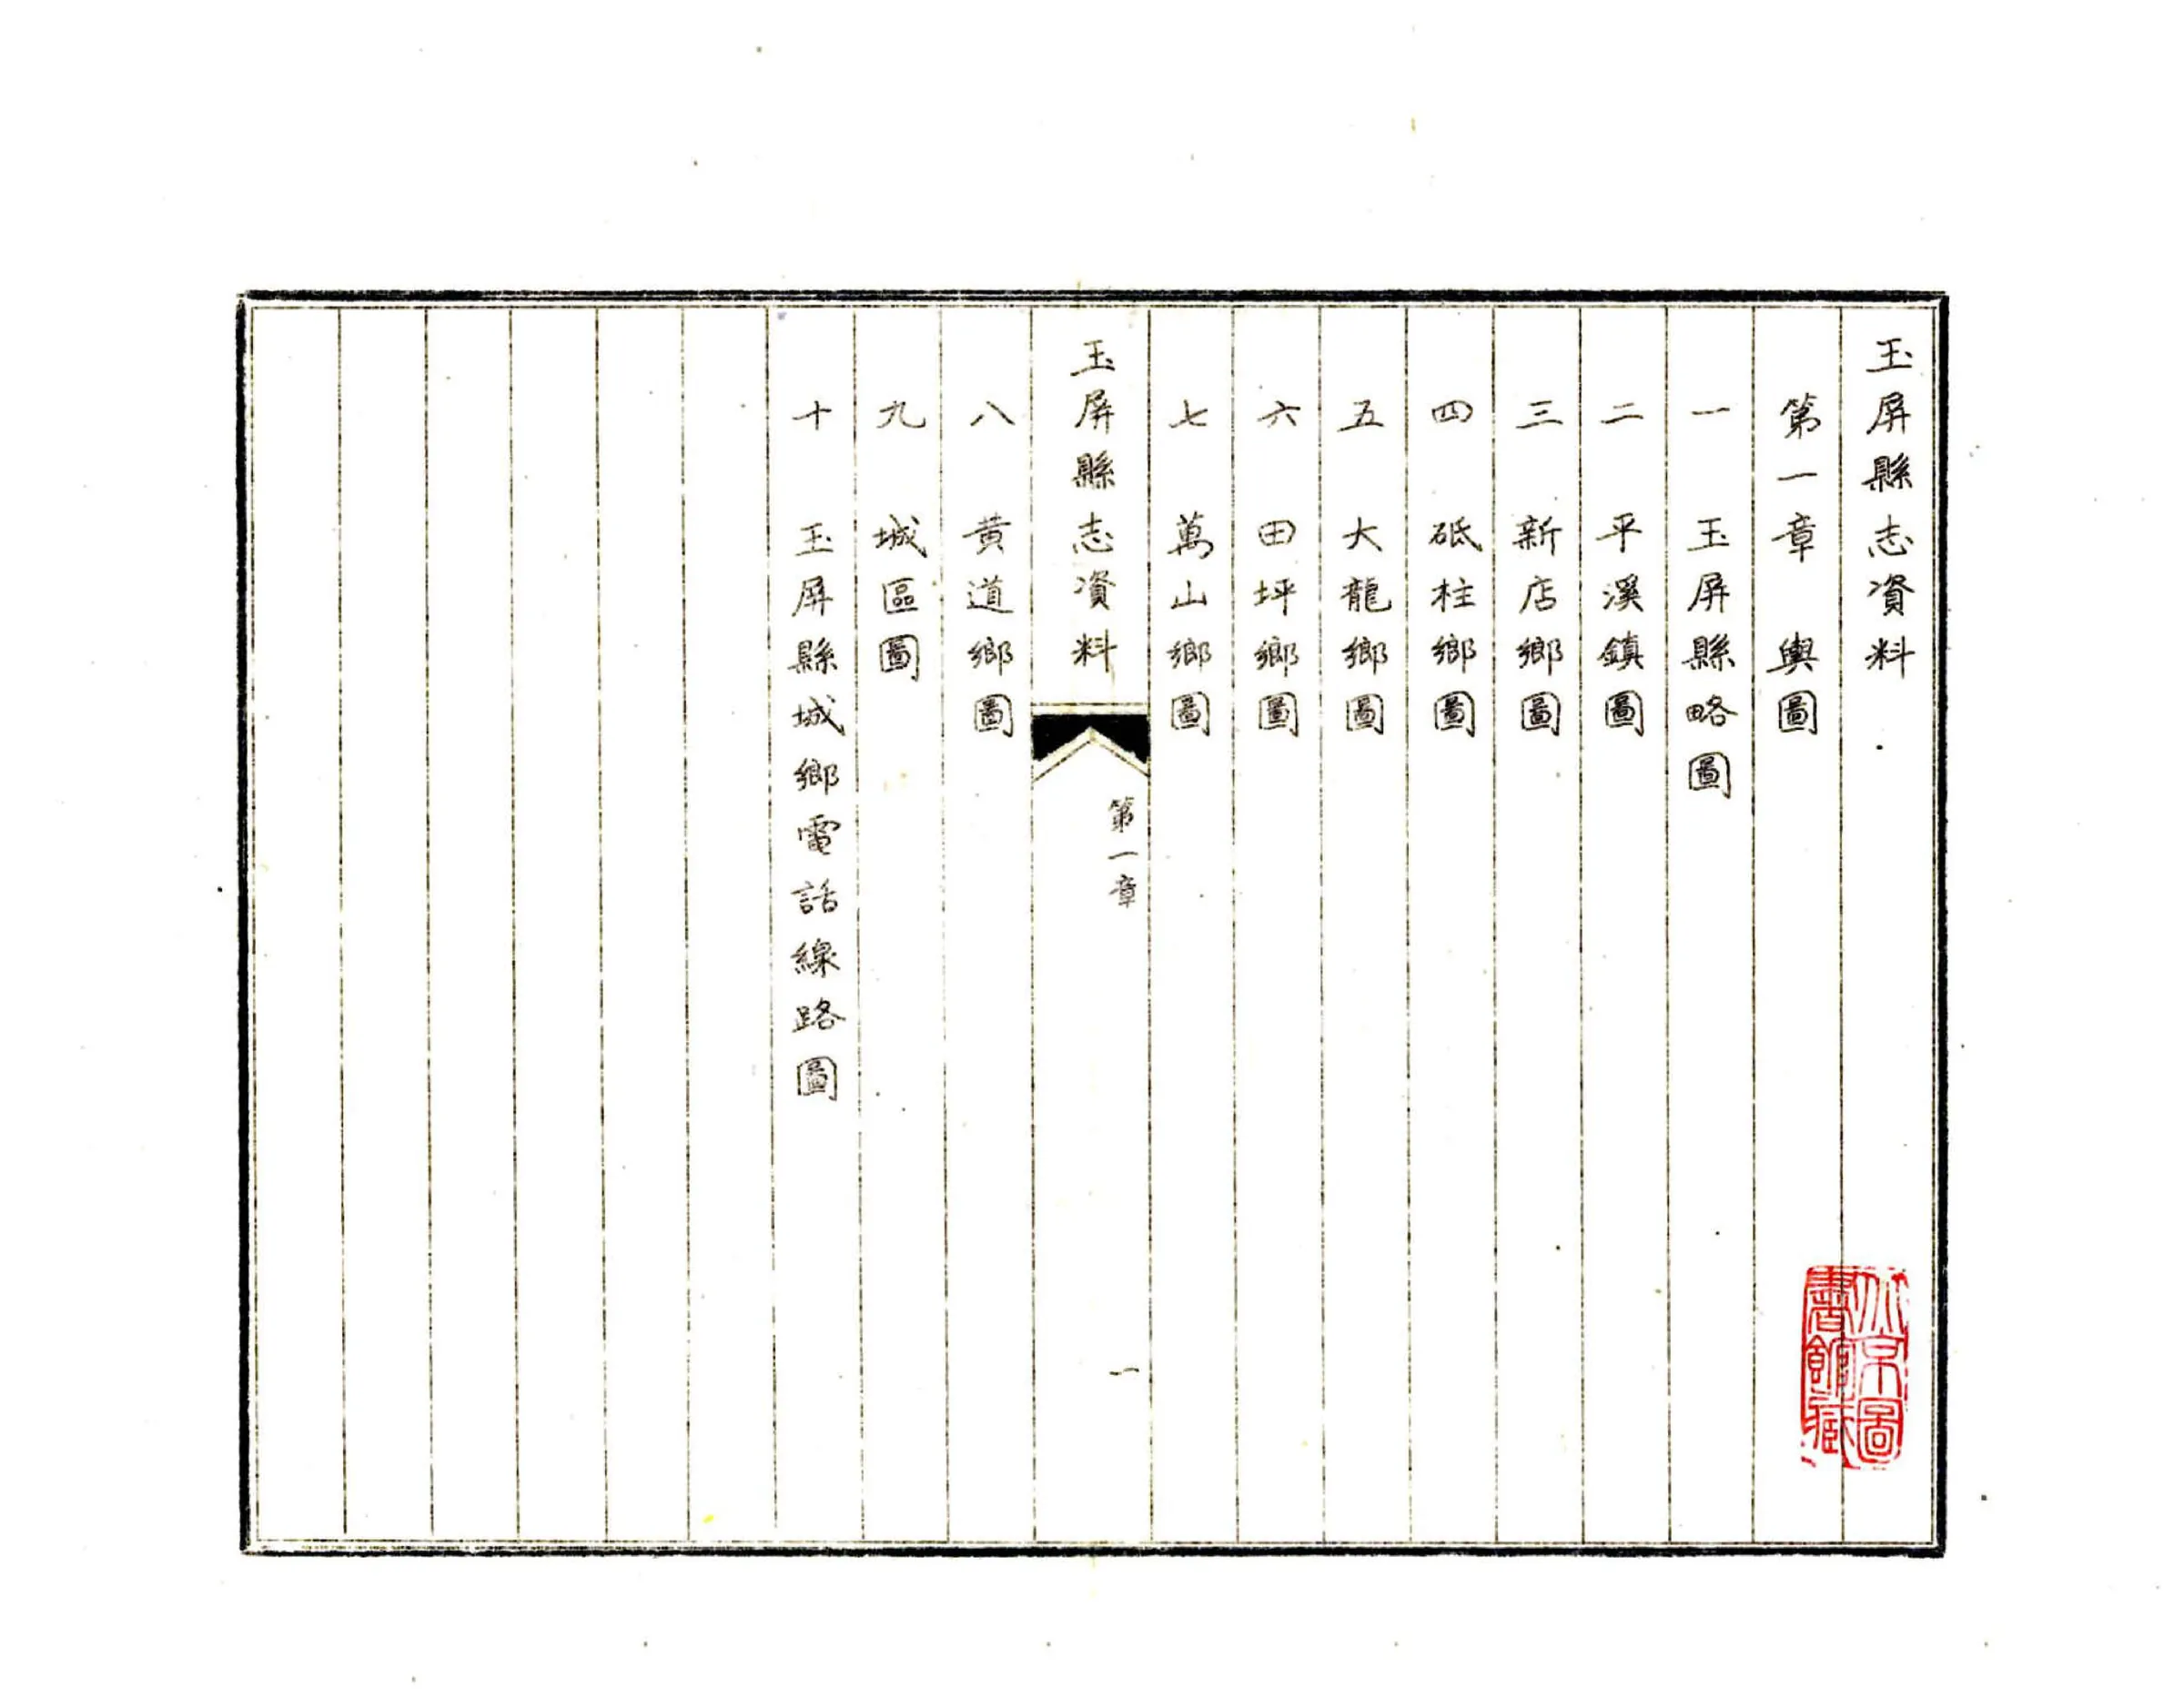 玉屏縣志資料
第一章　輿圖
一　玉屏縣略圖
二　平溪鎮圖
三　新店鄉圖
四　砥柱鄉圖
五　大龍鄉圖
六　田坪鄉圖
七　萬山鄉圖
玉屏縣志資料
第一章
一
八　黄道鄉圖
九　城區圖
十　玉屏縣城鄉電話線路圖
北京圖
書館藏